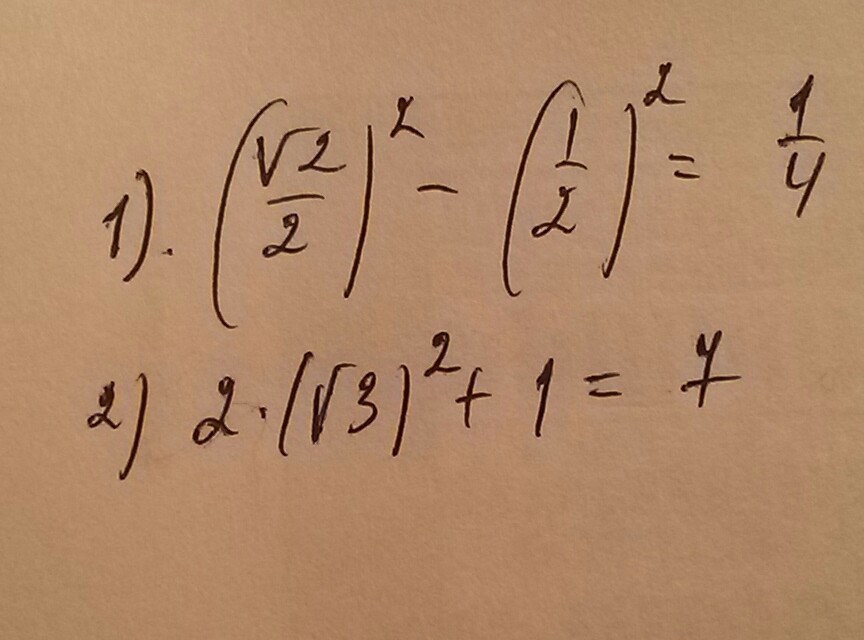 1). (√2/2)² - (1/2)² = 1/4
2) 2·(√3)² + 1 = 7